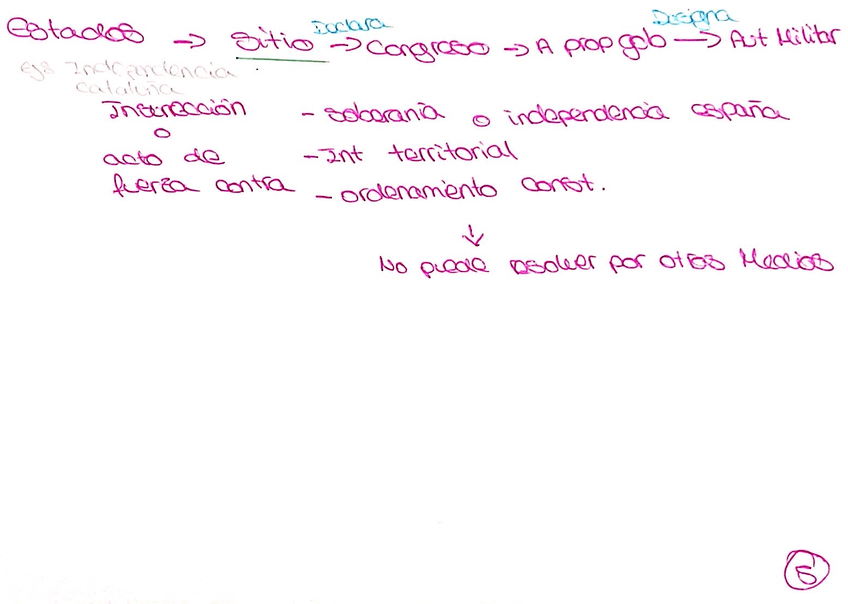 Declara Designa
Estados → Sitio → Congreso → A prop gob → Aut Militar
ej: Independencia
Cataluña
Insurrección - soberanía o independencia españa
o
acto de - Int territorial
fuerza contra - ordenamiento const.
↓
No puede resolver por otros Medios
5